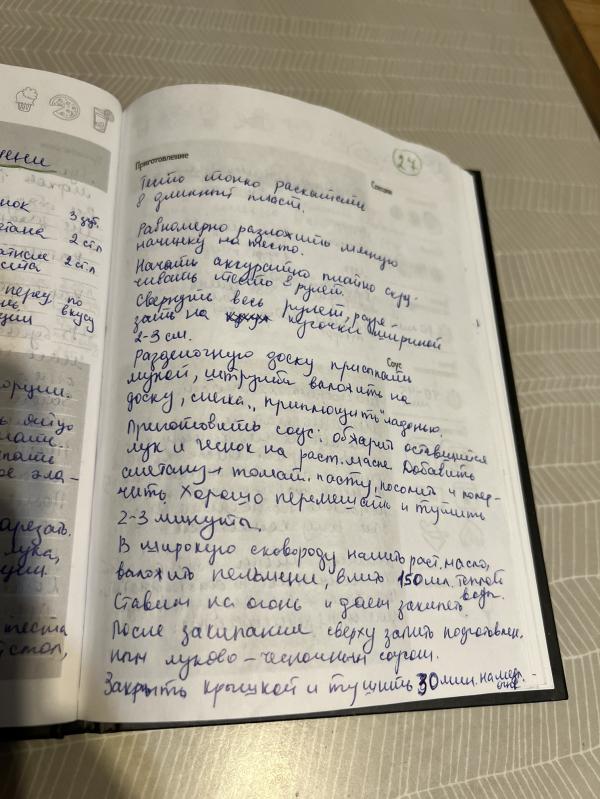 ени
нок 3 зуб.
тана 2 ст.л
2 ст.л
перец по
вкусу
лука,
теста
стол,
24
Приготовление
Тесто тонко раскатать
в длинный пласт.
Равномерно разложить мясную
начинку на тесто.
Начать аккуратно плотно скру-
чивать тесто в рулет.
Свернуть весь рулет, разре-
зать на кусочки шириной
2-3 см.
Соус
Разделочную доску присыпать
мукой, выложить на
доску, слегка "приплющить" ладонью.
Приготовить соус: обжарить оставшийся
лук и чеснок на раст. масле. Добавить
сметану + томат. пасту, посолить и попер-
чить. Хорошо перемешать и тушить
2-3 минуты.
В широкую сковороду налить раст. масло,
выложить пельмени, влить 150 мл. теплой
воды.
Ставим на огонь и даем закипеть
После закипания сверху залить подготовлен-
ным луково-чесночным соусом.
Закрыть крышкой и тушить 30 мин. на медл.
огне